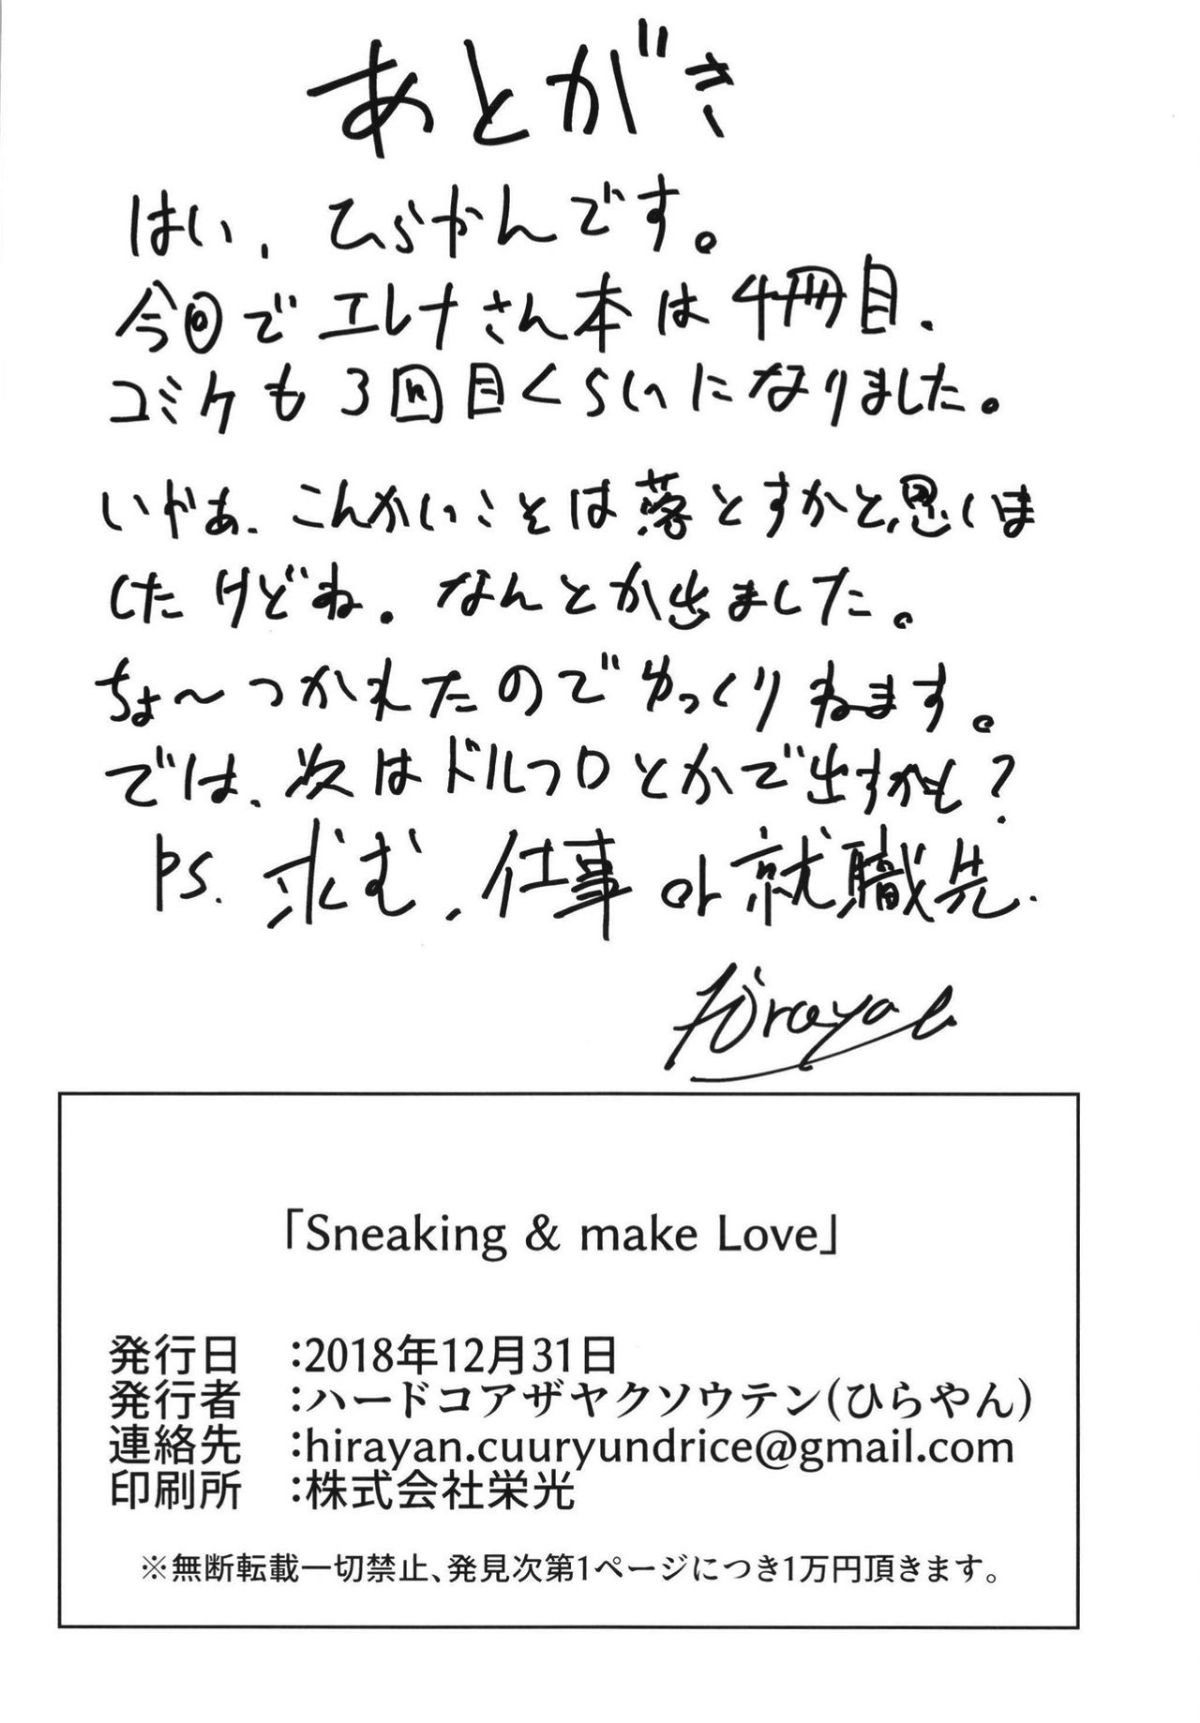 あとがき
はい、ひらやんです。
今回でエレナさん本は4冊目、
コミケも3回目くらいになりました。
いやぁ、こんかいことは落とすかと思いま
したけどね。なんとか出ました。
ちょ〜つかれたのでゆっくりねます。
では、次はドルフロとかで出すかも?
PS. 求む、仕事 or 就職先.
「Sneaking & make Love」
発行日 :2018年12月31日
発行者 :ハードコアザヤクソウテン(ひらやん)
連絡先 :hirayan.cuuryundrice@gmail.com
印刷所 :株式会社栄光
※無断転載一切禁止、発見次第1ページにつき1万円頂きます。